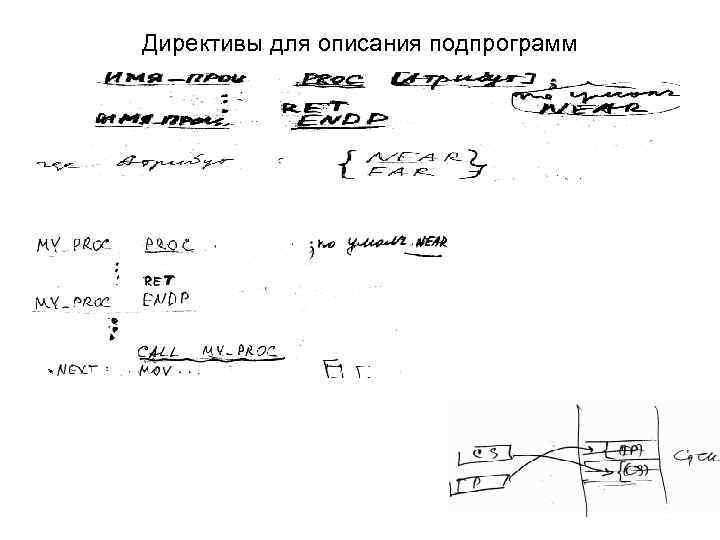 Директивы для описания подпрограмм
ИМЯ_ПРОЦ PROC [Атрибут] ;
по умолч NEAR
RET
ИМЯ ПРОЦ ENDP
где Атрибут : { NEAR
FAR }
MY_PROC PROC ; по умолч. NEAR
RET
MY_PROC ENDP
CALL MY_PROC
NEXT: MOV ...
CS (IP)
P (CS)